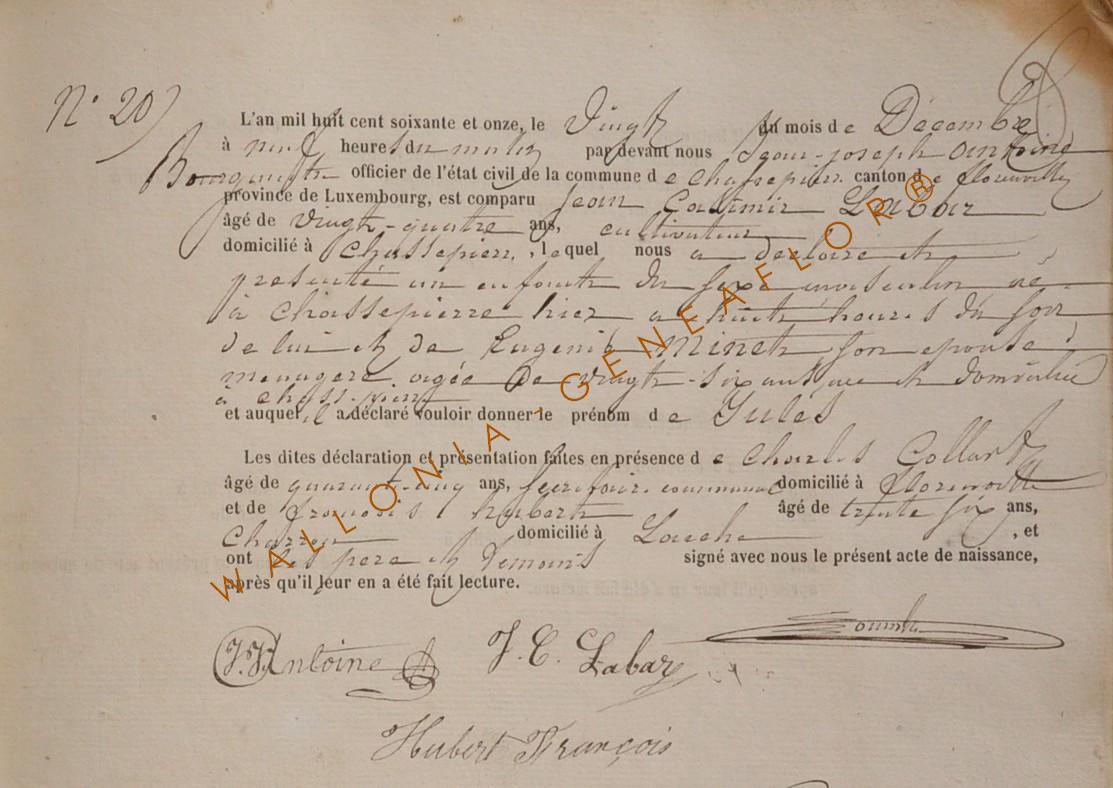 N° 20
L'an mil huit cent soixante et onze, le Vingt du mois de Décembre
à neuf heures du matin par devant nous Jean-joseph Antoine
Bourgmestre officier de l'état civil de la commune de Chassepierre canton de florenville
province de Luxembourg, est comparu Jean Casimir Labar
âgé de vingt-quatre ans, cultivateur
domicilié à Chassepierre, lequel nous a déclaré et
présenté un enfant du sexe masculin né
à Chassepierre hier à huit heures du soir
de lui et de Eugénie Minet son épouse
menagere agée de vingt-six ans avec lui domiciliée
à Chassepierre
et auquel il a déclaré vouloir donner le prénom de Jules
Les dites déclaration et présentation faites en présence de Charles Collart
âgé de quarante-cinq ans, Secrétaire communal domicilié à florenville
et de françois hubert âgé de trente six ans,
Charron domicilié à Laiche, et
ont les père et témoins signé avec nous le présent acte de naissance,
après qu'il leur en a été fait lecture.
J.J. Antoine J. C. Labar
Hubert François
WALLONIA - GENEAFLOR®